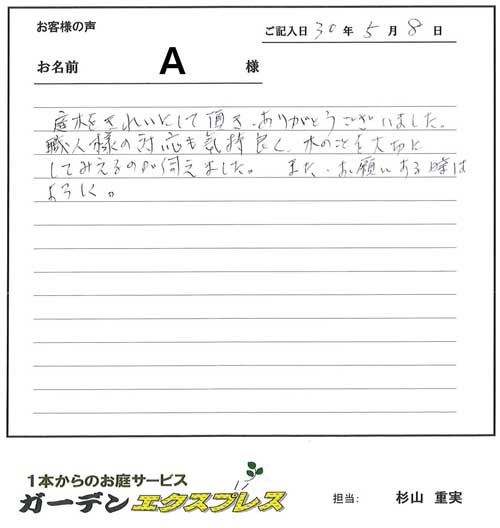 お客様の声
ご記入日 30 年 5 月 8 日
お名前 A 様
庭木をきれいにして頂き、ありがとうございました。
職人様の対応も気持良く、木のことを大切に
してみえるのが伺えました。また、お願いある時は
よろしく。
1本からのお庭サービス
ガーデンエクスプレス
担当: 杉山 重実